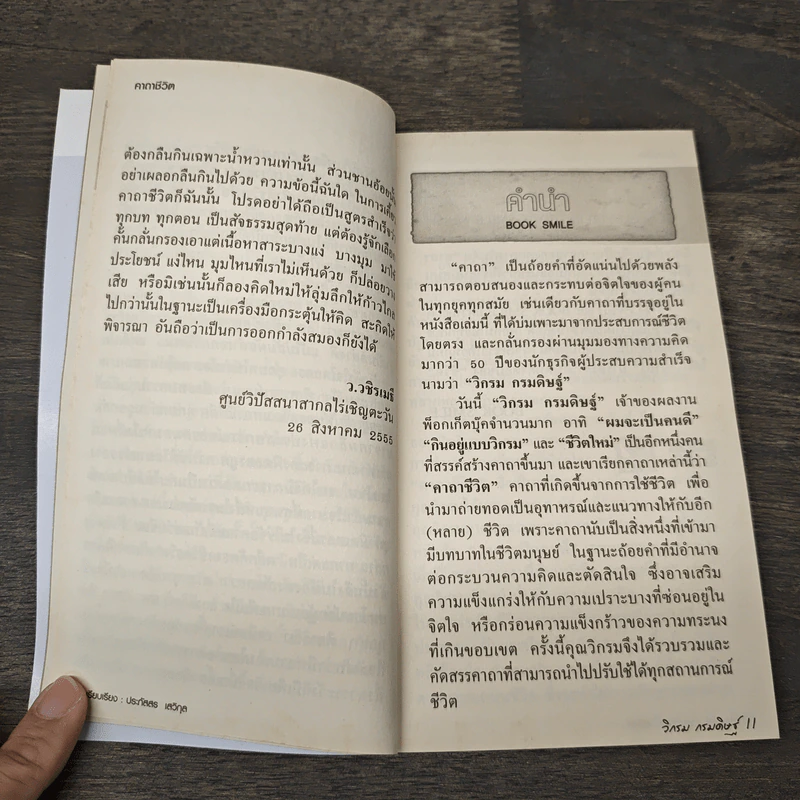 คาถาชีวิต
ต้องกลืนกินเฉพาะน้ำหวานเท่านั้น ส่วนชานอ้อยนั้น
อย่าเผลอกลืนกินไปด้วย ความข้อนี้ฉันใด ในการเสี้ยว
คาถาชีวิตก็ฉันนั้น โปรดอย่าได้ถือเป็นสูตรสำเร็จว่า
ทุกบท ทุกตอน เป็นสัจธรรมสุดท้าย แต่ต้องรู้จักเลือก
คั้นกลั่นกรองเอาแต่เนื้อหาสาระบางแง่ บางมุม มาใช้
ประโยชน์ แง่ไหน มุมไหนที่เราไม่เห็นด้วย ก็ปล่อยวาง
เสีย หรือมิเช่นนั้นก็ลองคิดใหม่ให้ลุ่มลึกให้ก้าวไกล
ไปกว่านั้นในฐานะเป็นเครื่องมือกระตุ้นให้คิด สะกิดให้
พิจารณา อันถือว่าเป็นการออกกำลังสมองก็ยังได้
ว.วชิรเมธี
ศูนย์วิปัสสนาสากลไร่เชิญตะวัน
26 สิงหาคม 2555
เรียบเรียง : ประภัสสร เสวิกุล
คำนำ
BOOK SMILE
“คาถา” เป็นถ้อยคำที่อัดแน่นไปด้วยพลัง
สามารถตอบสนองและกระทบต่อจิตใจของผู้คน
ในทุกยุคทุกสมัย เช่นเดียวกับคาถาที่บรรจุอยู่ใน
หนังสือเล่มนี้ ที่ได้บ่มเพาะมาจากประสบการณ์ชีวิต
โดยตรง และกลั่นกรองผ่านมุมมองทางความคิด
มากว่า 50 ปีของนักธุรกิจผู้ประสบความสำเร็จ
นามว่า “วิกรม กรมดิษฐ์”
วันนี้ “วิกรม กรมดิษฐ์” เจ้าของผลงาน
พ็อกเก็ตบุ๊คจำนวนมาก อาทิ “ผมจะเป็นคนดี”
“กินอยู่แบบวิกรม” และ “ชีวิตใหม่” เป็นอีกหนึ่งคน
ที่สรรค์สร้างคาถาขึ้นมา และเขาเรียกคาถาเหล่านี้ว่า
“คาถาชีวิต” คาถาที่เกิดขึ้นจากการใช้ชีวิต เพื่อ
นำมาถ่ายทอดเป็นอุทาหรณ์และแนวทางให้กับอีก
(หลาย) ชีวิต เพราะคาถานับเป็นสิ่งหนึ่งที่เข้ามา
มีบทบาทในชีวิตมนุษย์ ในฐานะถ้อยคำที่มีอำนาจ
ต่อกระบวนความคิดและตัดสินใจ ซึ่งอาจเสริม
ความแข็งแกร่งให้กับความเปราะบางที่ซ่อนอยู่ใน
จิตใจ หรือกร่อนความแข็งกร้าวของความทระนง
ที่เกินขอบเขต ครั้งนี้คุณวิกรมจึงได้รวบรวมและ
คัดสรรคาถาที่สามารถนำไปปรับใช้ได้ทุกสถานการณ์
ชีวิต
วิกรม กรมดิษฐ์ 11